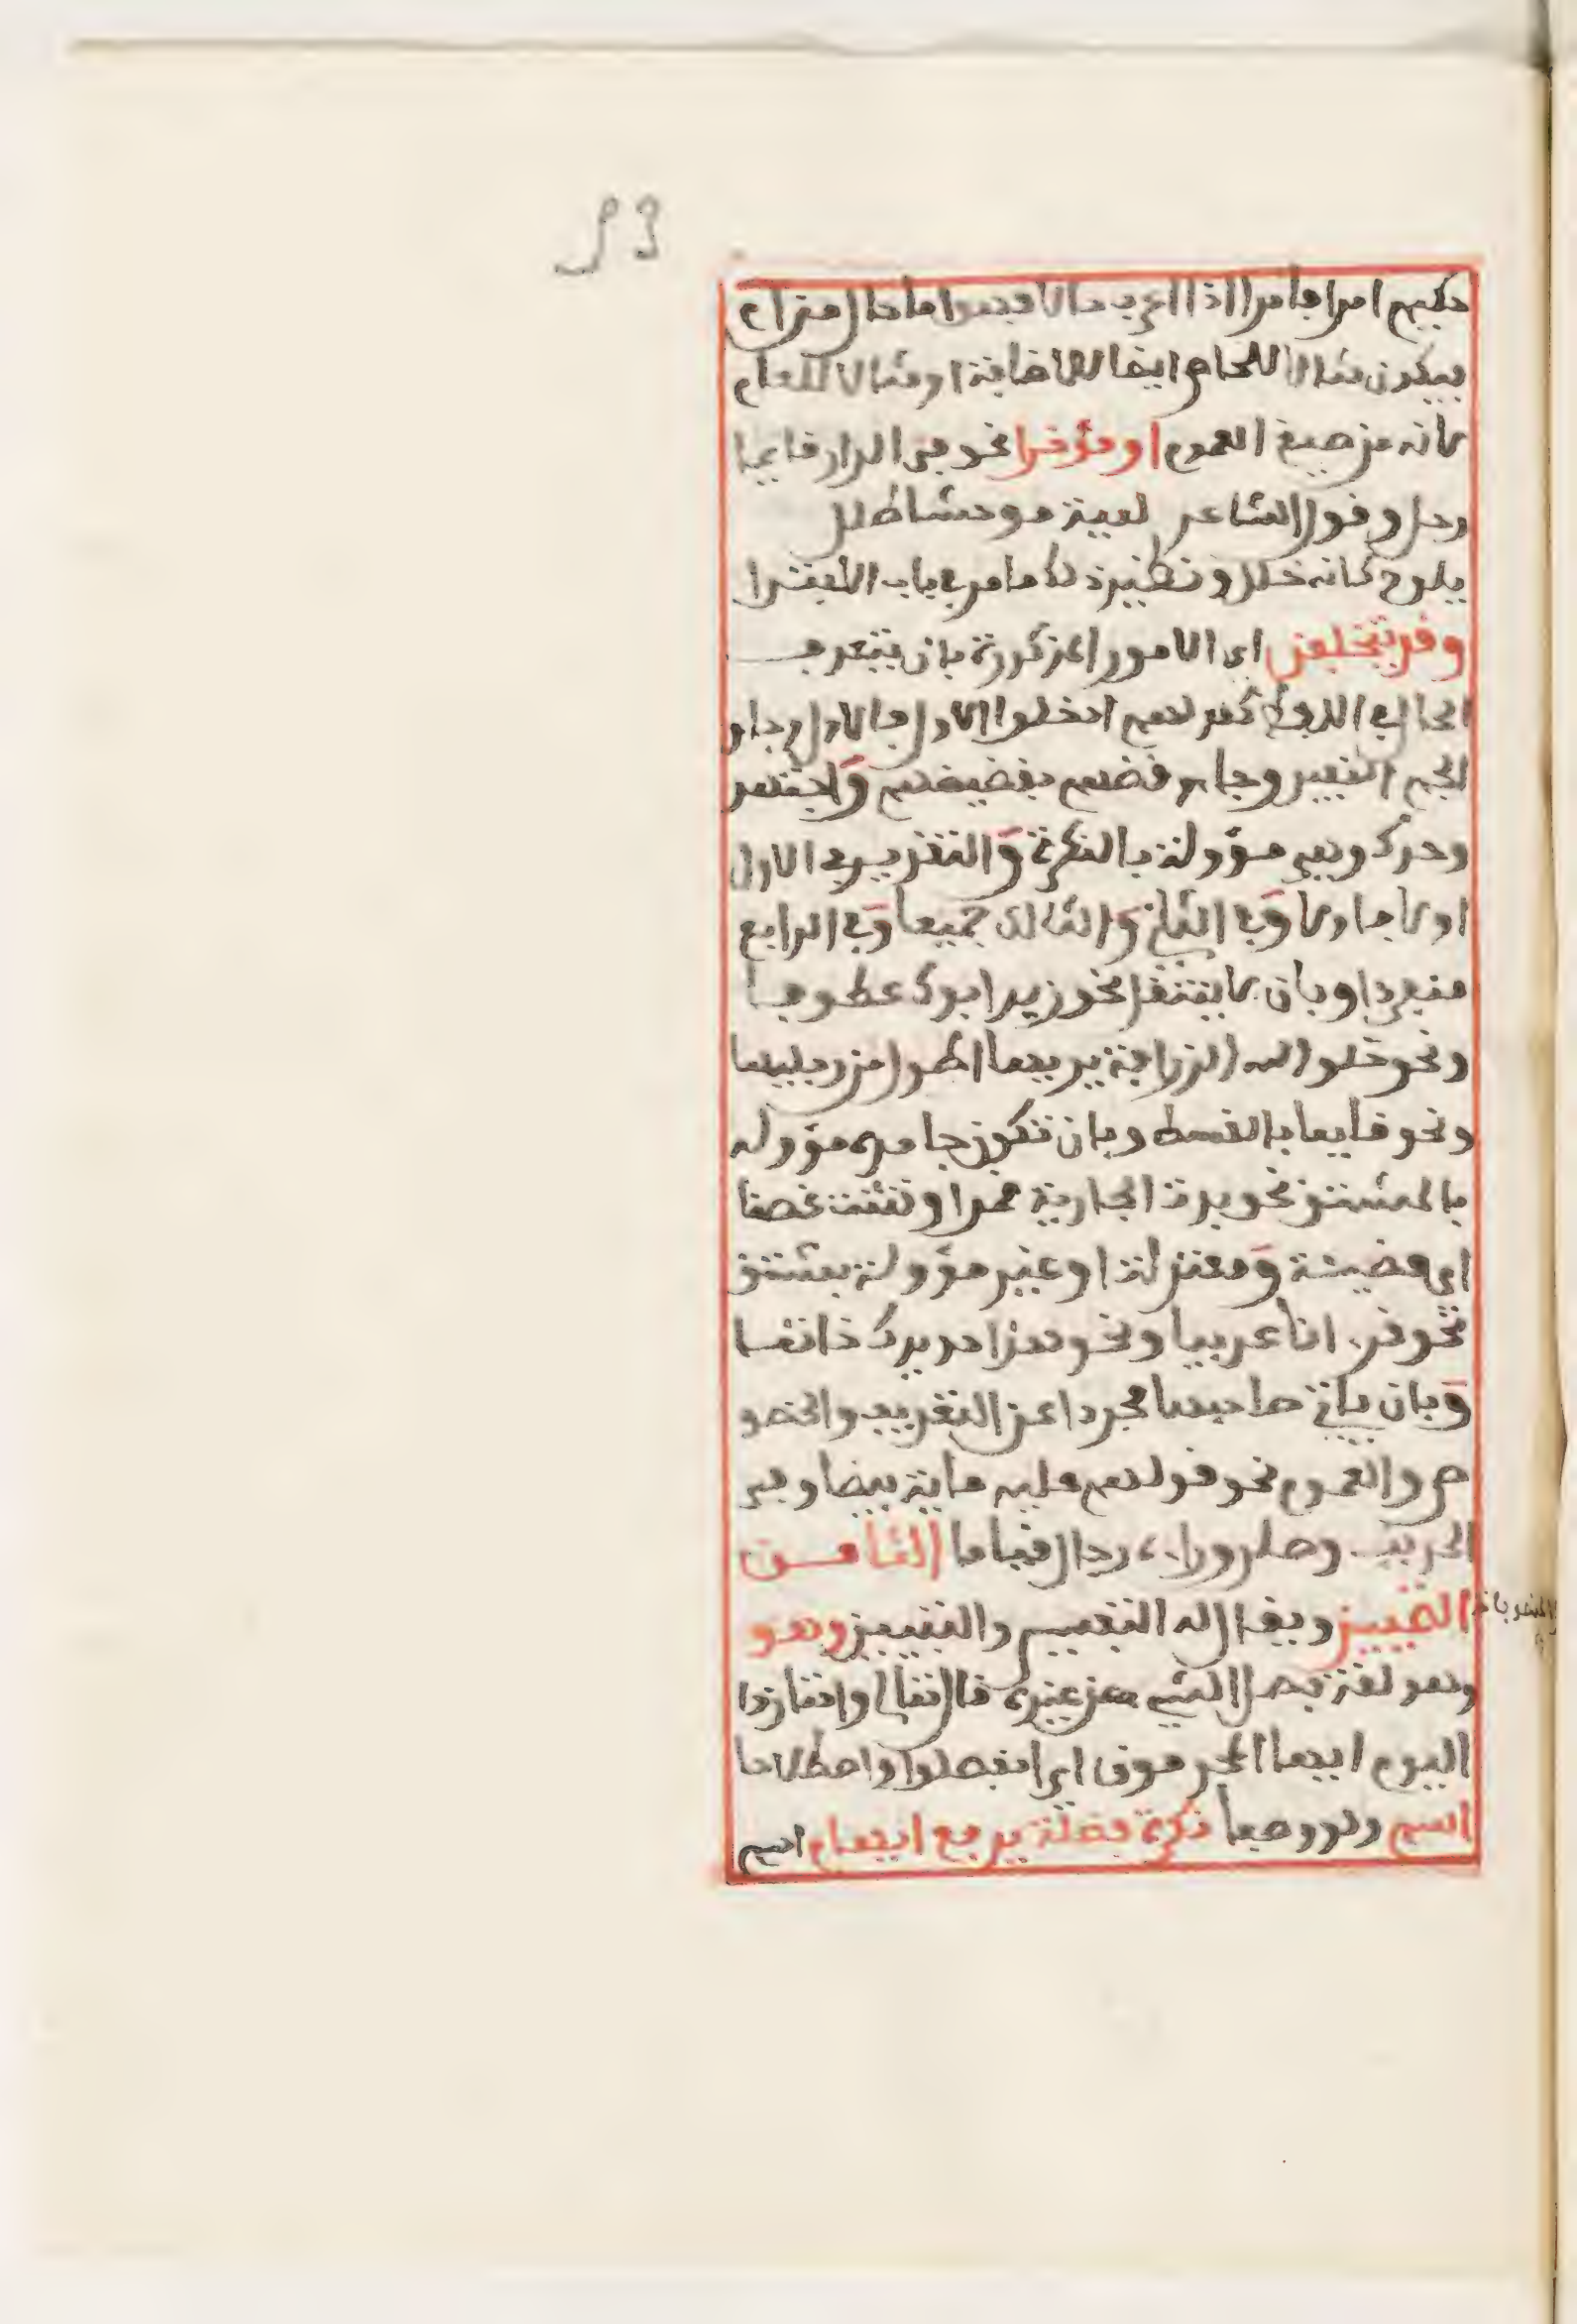 حكيم امرا فامرا اذا اعرب حالا فيهما فاما حال من امر
فيكون مثالا للخاص ايضا للاضافة او مثالا للعام
لانه من صيغ العموم او مؤخرا نحو في الدار قايما
رجل وقول الشاعر لمية موحشا طلل
يلوح كانه خلل ونظير ذلك ما مر في باب الابتدا
وقد يتخلفن اي الامور المذكورة بان يتعرف
الحال في اللفظ كقولهم ادخلوا الاول فالاول وجاو
الجم الغفير وجاء قضهم بقضيضهم واجتهد
وحدك وهي مؤولة بالنكرة والتقدير في الاول
اولا فاولا وفي الثاني والثالث جميعا وفي الرابع
منفردا وبان لا ينتقل نحو زيد ابوك عطوفا
ونحو خلق الله الزرافة يديها اطول من رجليها
ونحو قايما بالقسط وبان تكون جامدة مؤوله
بالمشتق نحو بدت الجارية قمرا وتثنت غصنا
اي مضيئة ومعتدلة او غير مؤولة بمشتق
نحو قرءانا عربيا ونحو هذا حديدك خاتما
وبان ياتي صاحبها مجردا عن التعريف والخصو
ص والعموم نحو قولهم عليه ماية بيضا وفي
الحديث وصلى وراءه رجال قياما الثامن
من المنصوبات
التمييز ويقال له التفسير والتبيين وهو
وهو لغة فصل الشيء عن غيره قال تعالى وامتازوا
اليوم ايها المجرمون اي انفصلوا واصطلاحا
اسم ولو وصفا نكرة فضلة يرفع ابهام اسم